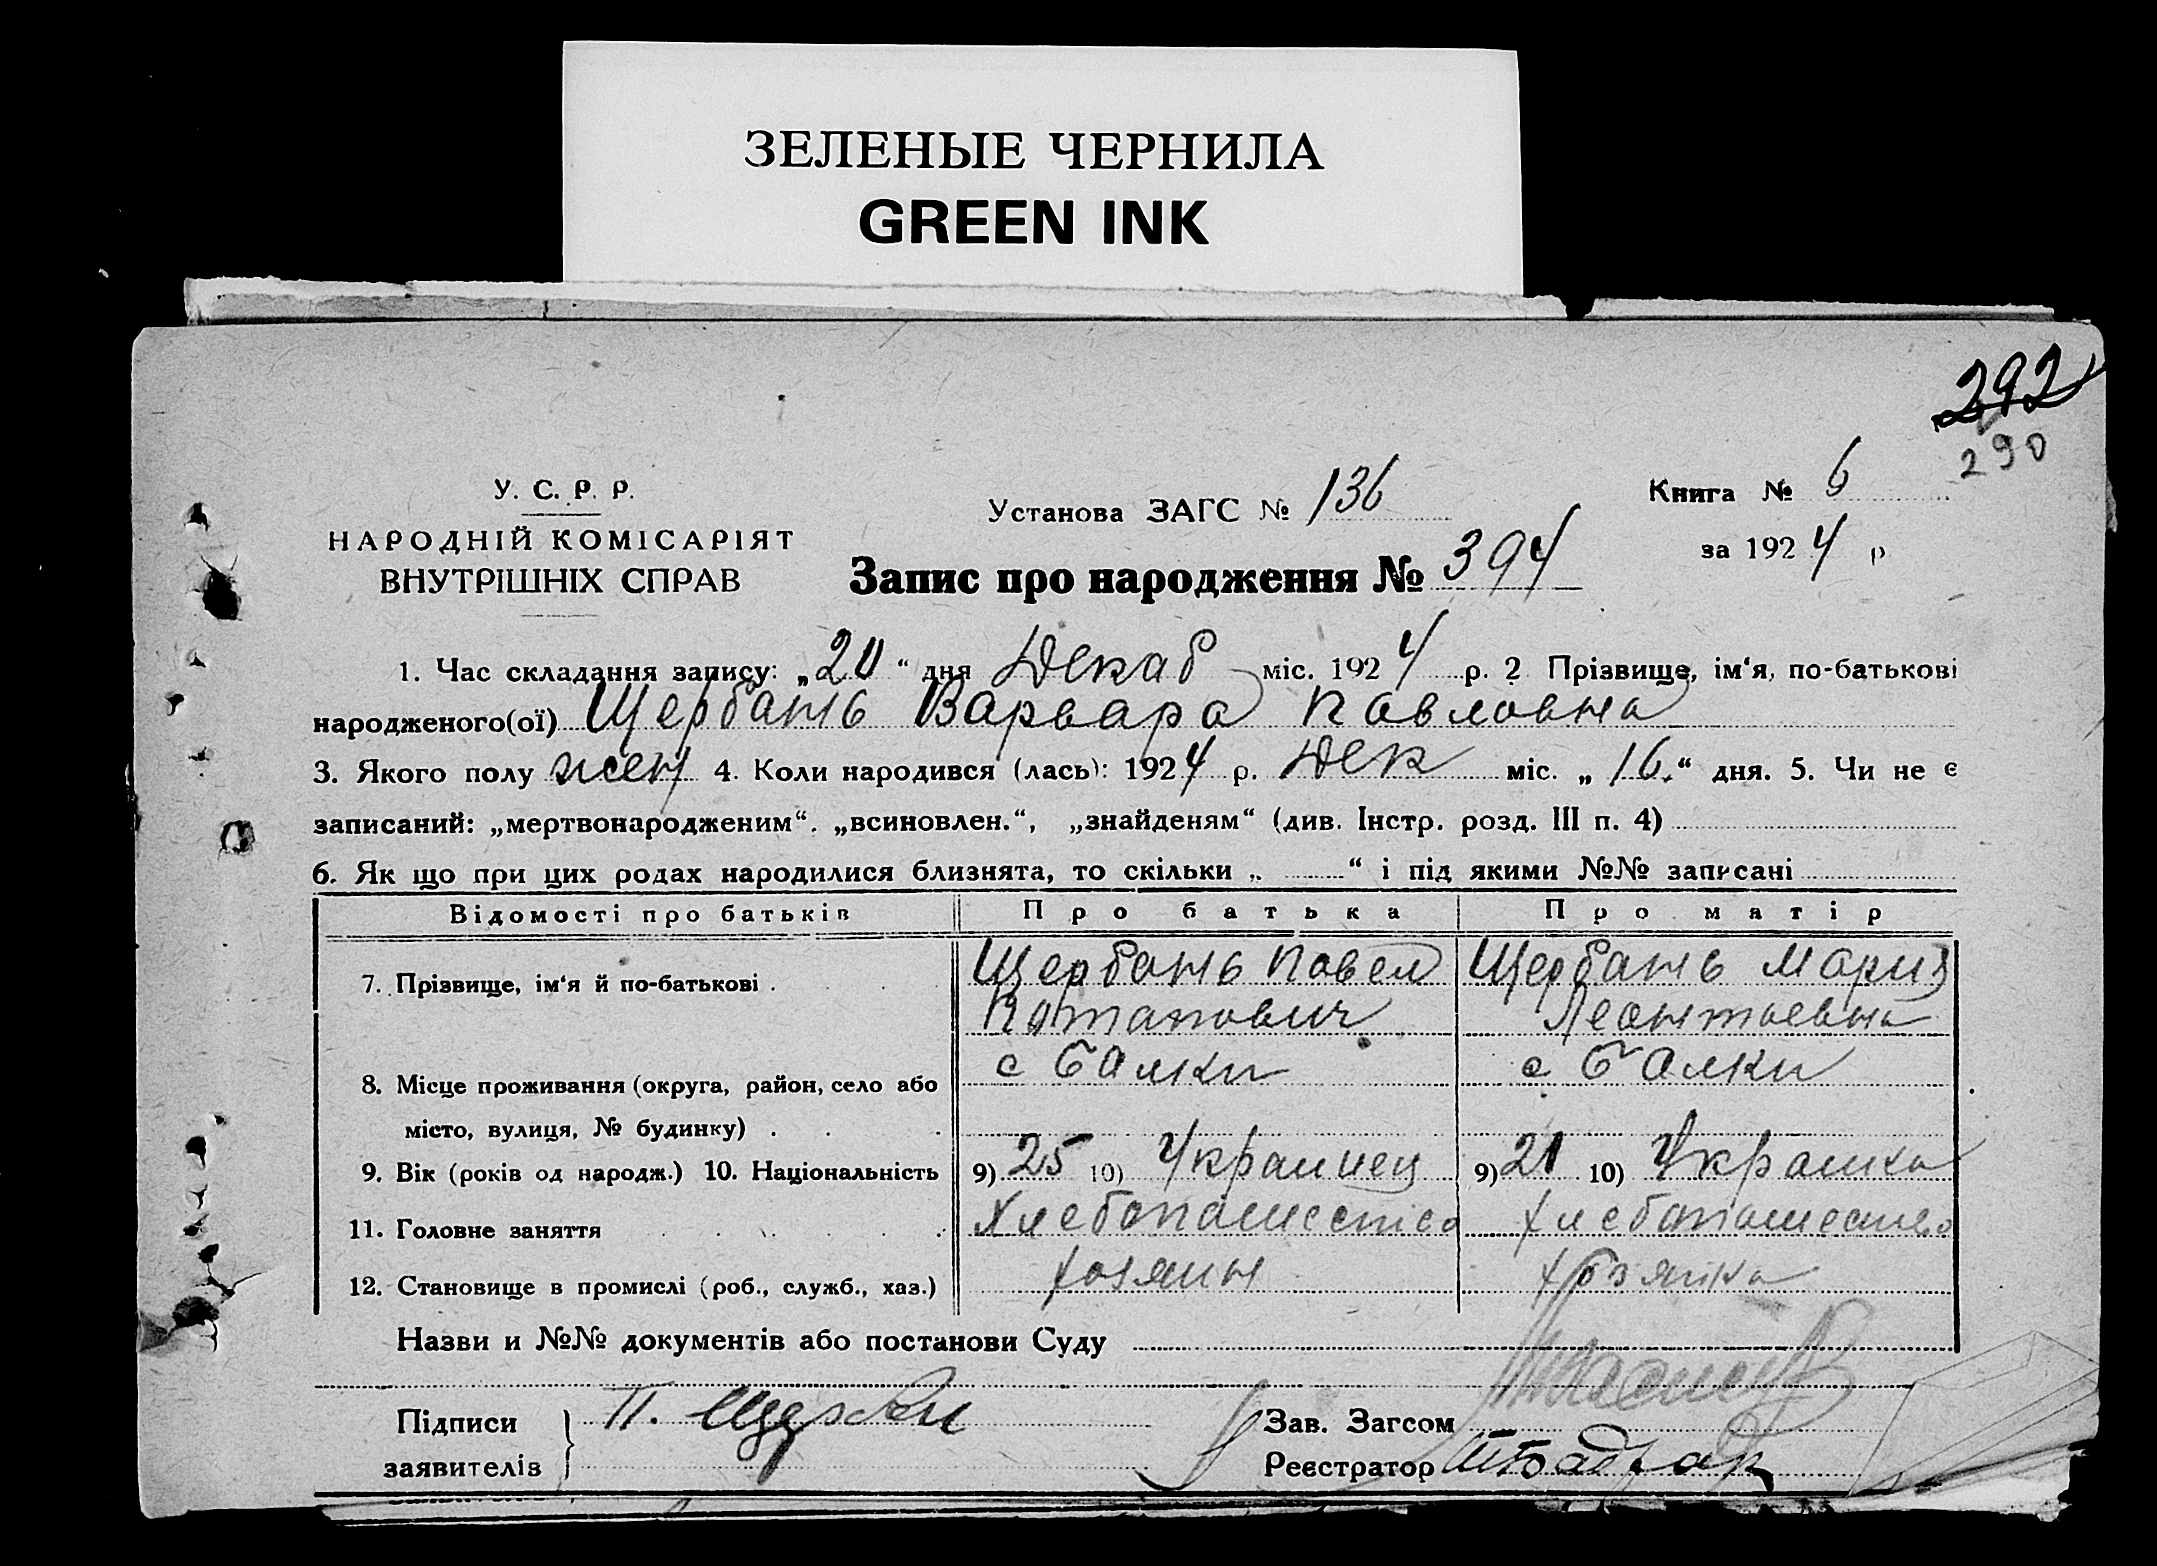 ЗЕЛЕНЫЕ ЧЕРНИЛА
GREEN INK
292
290
У. С. Р. Р.
НАРОДНІЙ КОМІСАРІЯТ
ВНУТРІШНІХ СПРАВ
Установа ЗАГС № 136
Книга № 6
за 1924 р
Запис про народження № 394
1. Час складання запису: „20“ дня Декаб міс. 1924 р. 2 Прізвище, ім‘я, по-батькові
народженого(ої) Щербань Варвара Павловна
3. Якого полу жен 4. Коли народився (лась): 1924 р. Дек міс. „16.“ дня. 5. Чи не є
записаний: „мертвонародженим“. „всиновлен.“, „знайденям“ (див. Інстр. розд. III п. 4)
6. Як що при цих родах народилися близнята, то скільки „ “ і під якими №№ записані
Відомості про батьків Про батька Про матір
7. Прізвище, ім‘я й по-батькові . Щербань Павел Щербань Мария
Потапович Леонтьевна
с Балки с Балки
8. Місце проживання (округа, район, село або
місто, вулиця, № будинку) . . .
9. Вік (років од народж.) 10. Національність 9) 25 10) Украинец 9) 21 10) Украинка
11. Головне заняття Хлебопашество хлебопашество
12. Становище в промислі (роб., служб., хаз.) хозяин хозяйка
Назви и №№ документів або постанови Суду
Підписи П. Щербан Зав. Загсом
заявителів Реєстратор